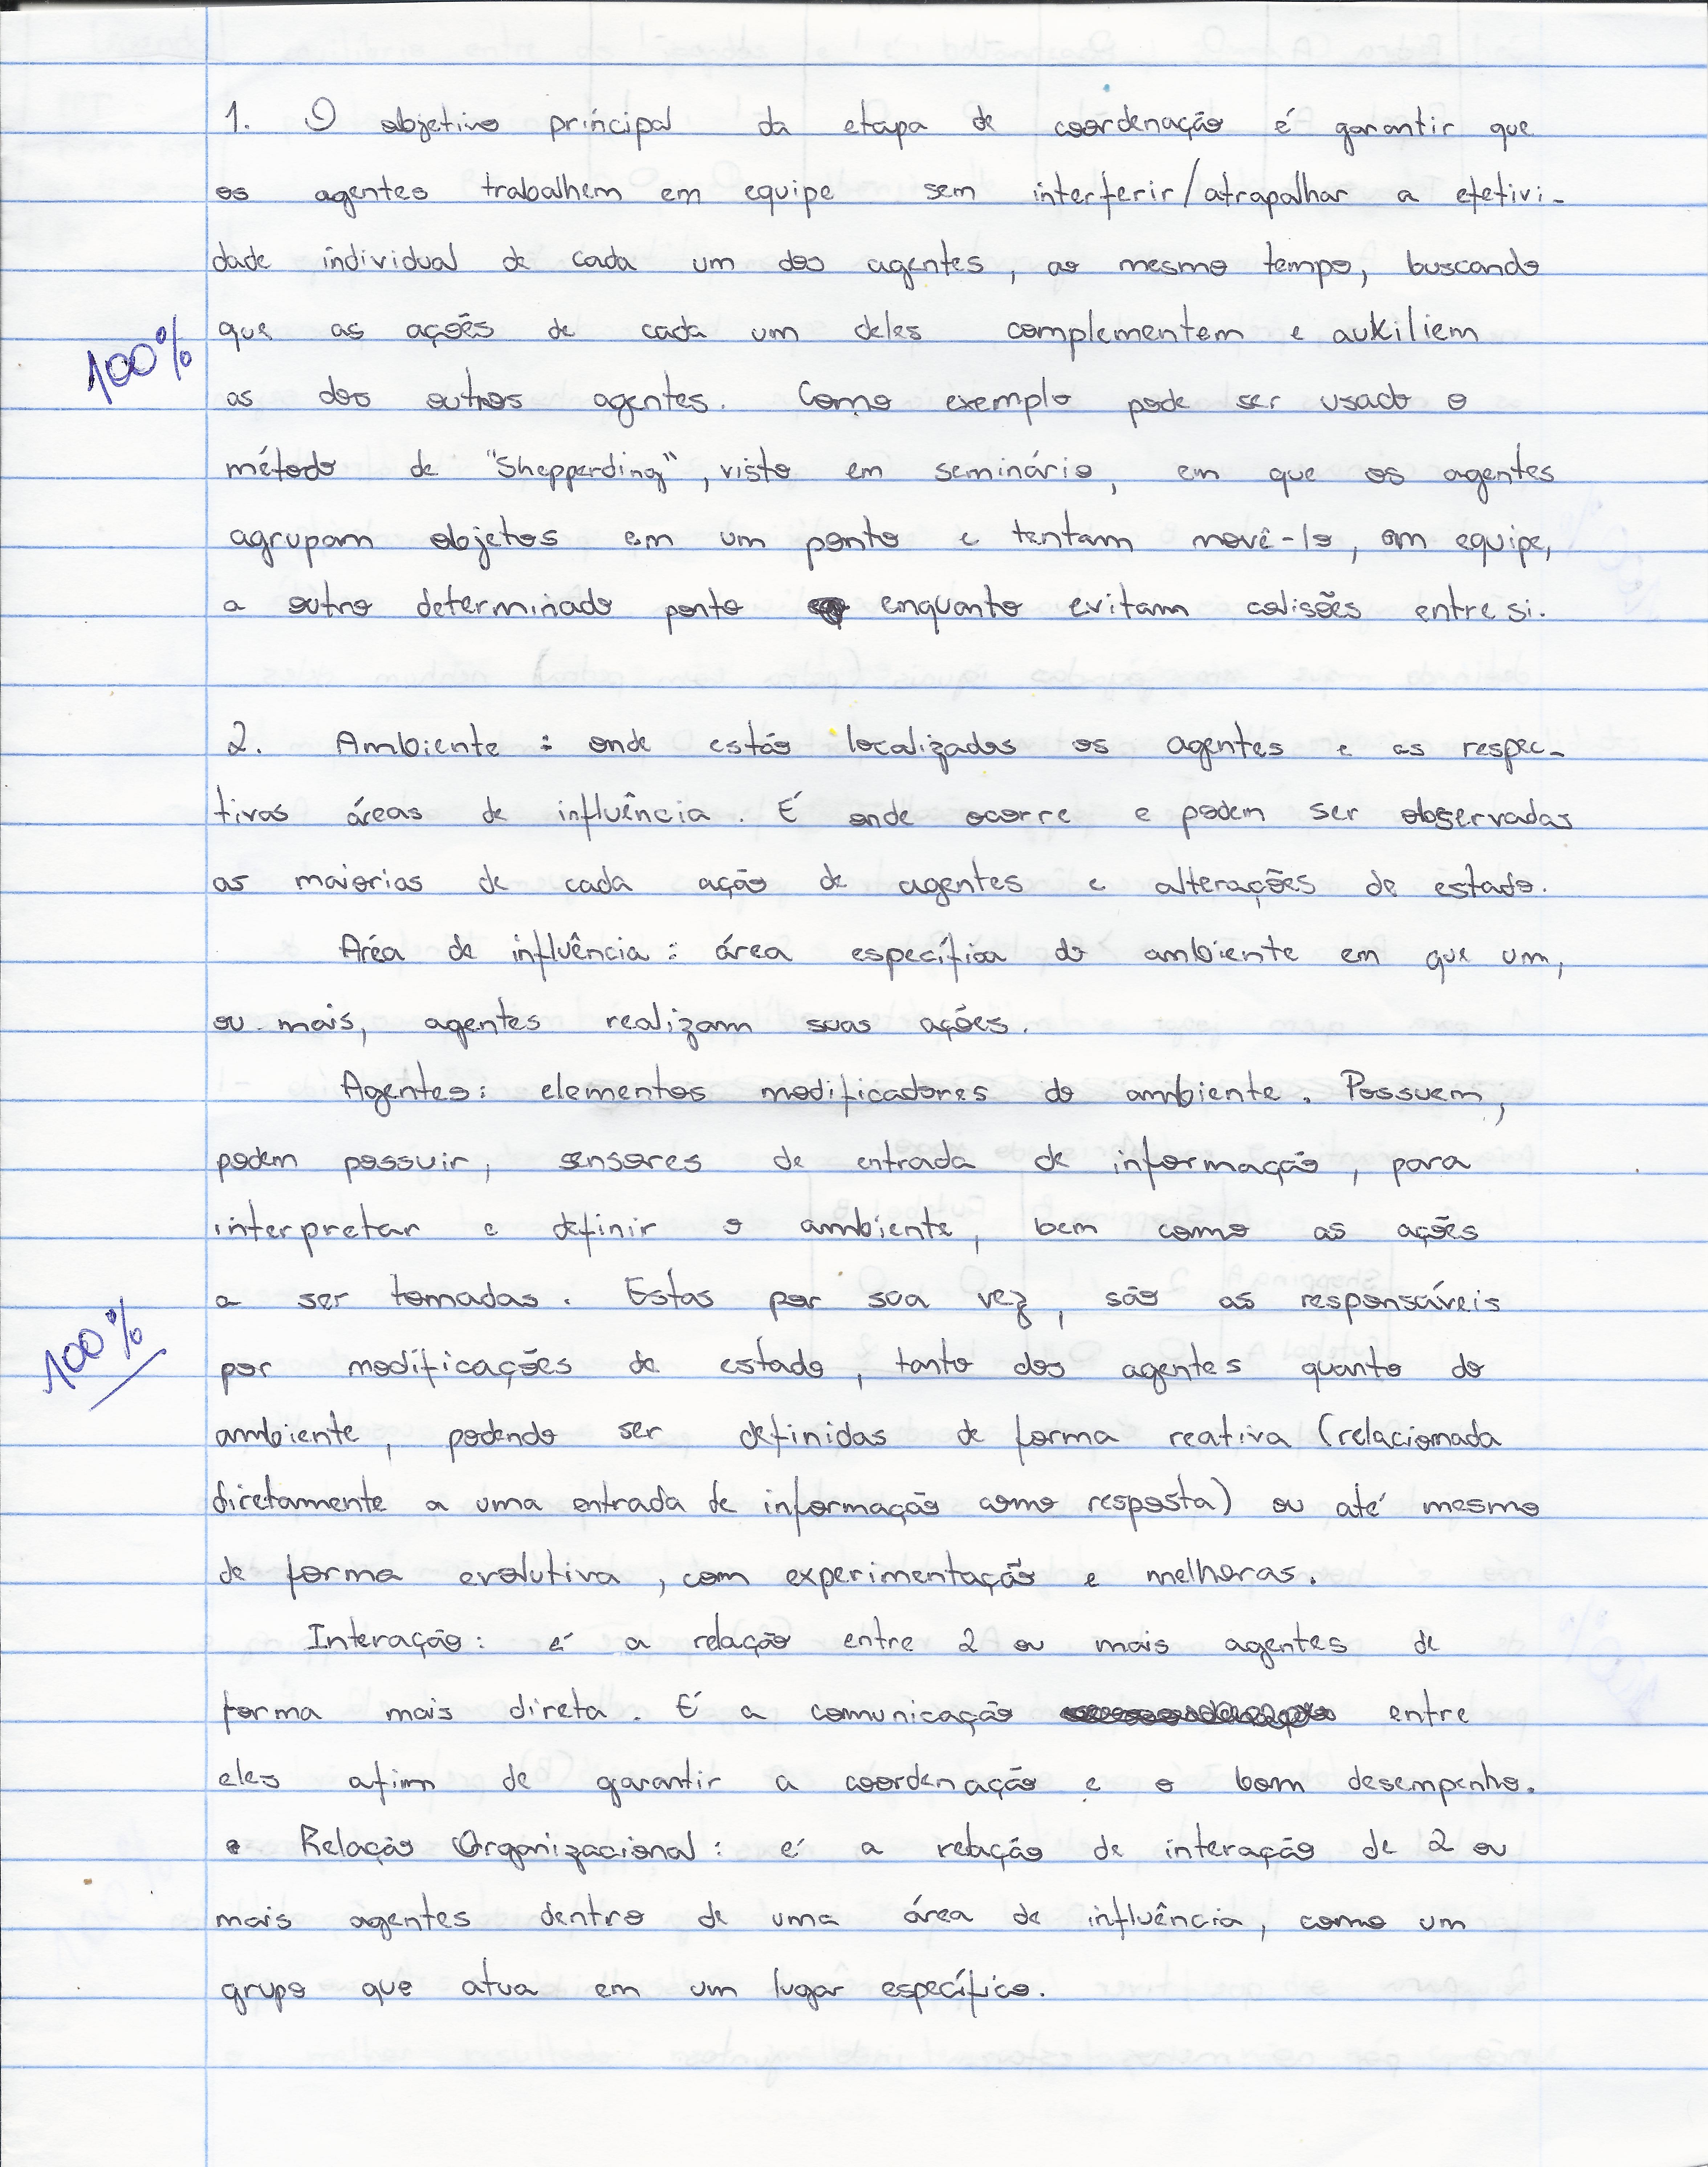 1. O objetivo principal da etapa de coordenação é garantir que
os agentes trabalhem em equipe sem interferir/atrapalhar a efetivi-
dade individual de cada um dos agentes, ao mesmo tempo, buscando
que as ações de cada um deles complementem e auxiliem
100%
as dos outros agentes. Como exemplo pode ser usado o
método de "Shepperding", visto em seminário, em que os agentes
agrupam objetos em um ponto e tentam movê-lo, em equipe,
a outro determinado ponto enquanto evitam colisões entre si.
2. Ambiente : onde estão localizados os agentes e as respec-
tivas áreas de influência. É onde ocorre e podem ser observadas
as maiorias de cada ação de agentes e alterações de estado.
Aréa de influência : área específica do ambiente em que um,
ou mais, agentes realizam suas ações.
Agentes: elementos modificadores do ambiente. Possuem,
podem possuir, sensores de entrada de informação, para
interpretar e definir o ambiente, bem como as ações
a ser tomadas. Estas por sua vez, são as responsáveis
100%
por modificações de estado, tanto dos agentes quanto do
ambiente, podendo ser definidas de forma reativa (relacionada
diretamente a uma entrada de informação como resposta) ou até mesmo
de forma evolutiva, com experimentação e melhoras.
Interação: é a relação entre 2 ou mais agentes de
forma mais direta. É a comunicação entre
eles afim de garantir a coordenação e o bom desempenho.
• Relação Organizacional: é a relação de interação de 2 ou
mais agentes dentro de uma área de influência, como um
grupo que atua em um lugar específico.